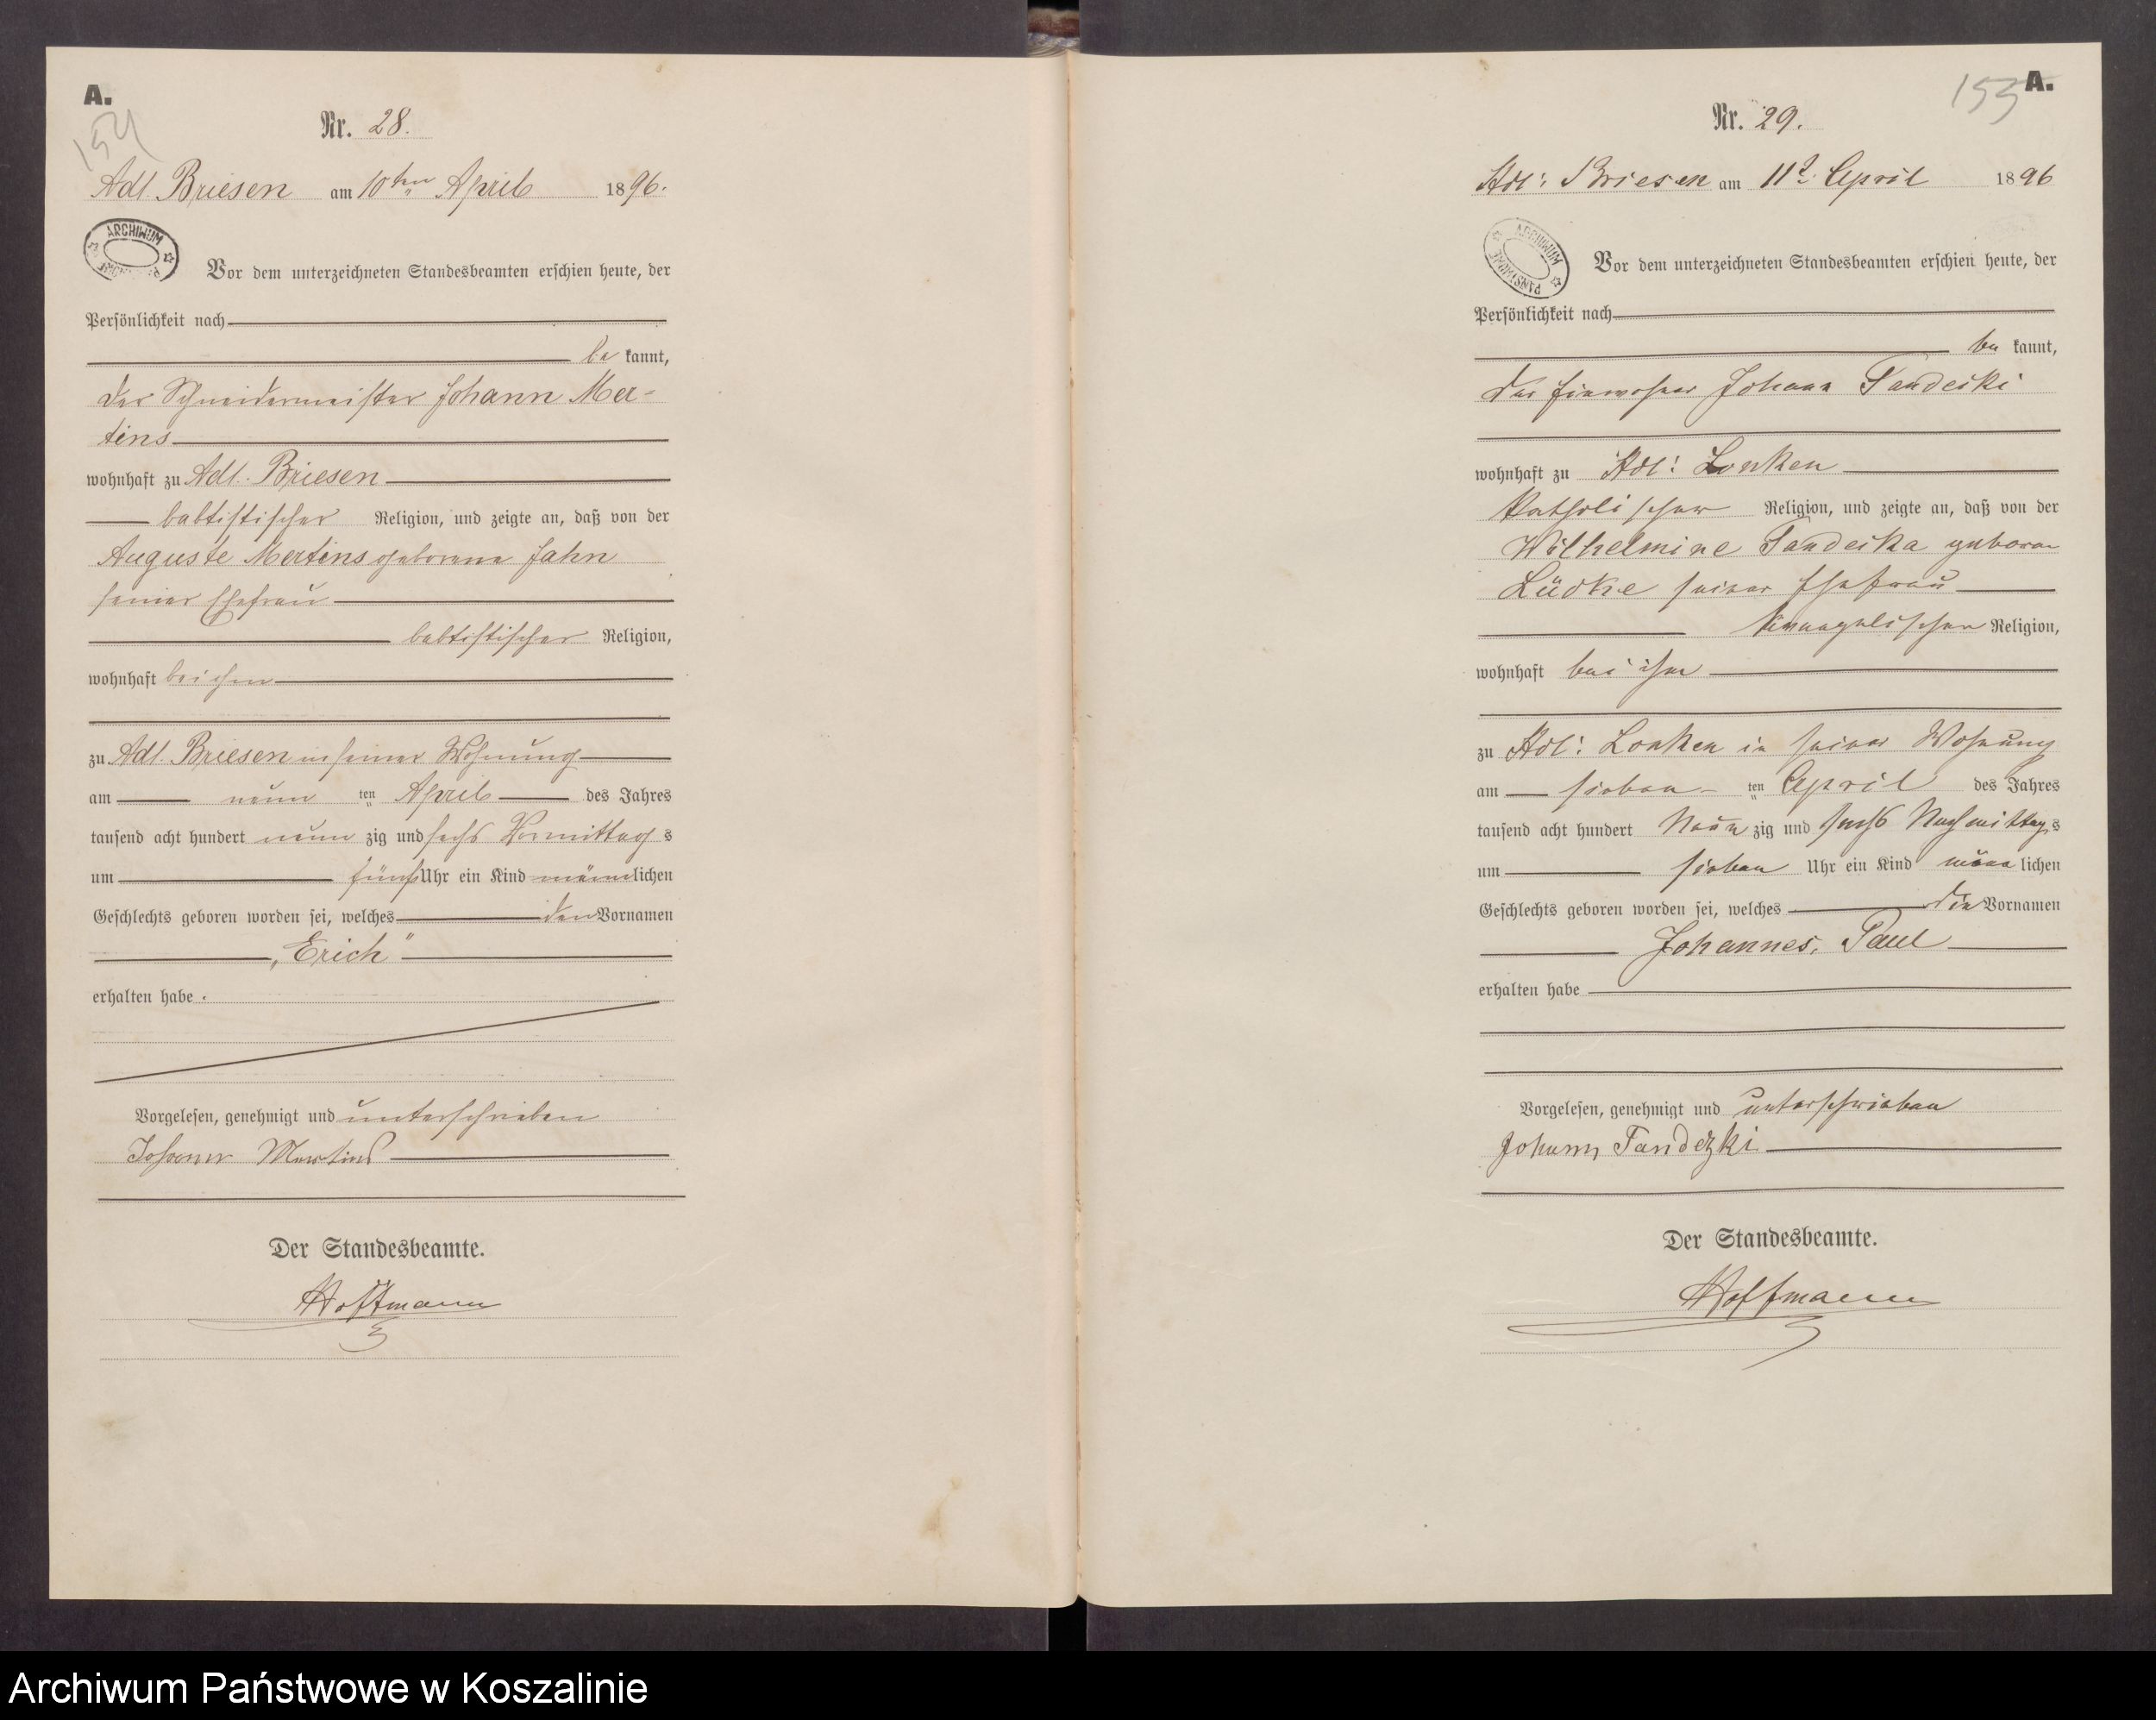 A.
154
Nr. 28.
Adl. Briesen am 10ten April 1896.
ARCHIWUM
Vor dem unterzeichneten Standesbeamten erschien heute, der
Persönlichkeit nach
be kannt,
der Schneidermeister Johann Mer-
tins
wohnhaft zu Adl. Briesen
babtistischer Religion, und zeigte an, daß von der
Auguste Mertins geborene Jahn
seiner Ehefrau
babtistischer Religion,
wohnhaft bei ihm
zu Adl. Briesen in seiner Wohnung
am neun ten April des Jahres
tausend acht hundert neun zig und sechs Vormittag s
um fünf Uhr ein Kind männlichen
Geschlechts geboren worden sei, welches den Vornamen
„Erich"
erhalten habe.
Vorgelesen, genehmigt und unterschrieben
Johann Mertins
Der Standesbeamte.
Hoffmann
A.
155
Nr. 29.
Adl: Briesen am 11t. April 1896
ARCHIWUM PAŃSTWOWE
Vor dem unterzeichneten Standesbeamten erschien heute, der
Persönlichkeit nach
be kannt,
der Einwohner Johann Tandecki
wohnhaft zu Adl: Lonken
katholischer Religion, und zeigte an, daß von der
Wilhelmine Tandecka geboren
Lüdke seiner Ehefrau
evangelischer Religion,
wohnhaft bei ihm
zu Adl: Lonken in seiner Wohnung
am sieben ten April des Jahres
tausend acht hundert Neun zig und sechs Nachmittag s
um sieben Uhr ein Kind männlichen
Geschlechts geboren worden sei, welches die Vornamen
Johannes, Paul
erhalten habe
Vorgelesen, genehmigt und unterschrieben
Johann Tandezki
Der Standesbeamte.
Hoffmann
Archiwum Państwowe w Koszalinie